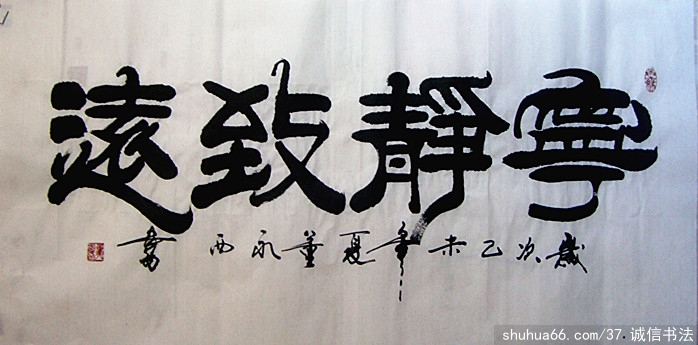 寧靜致遠
歲次乙未年夏董永西書
shuhua66.com/37.诚信书法